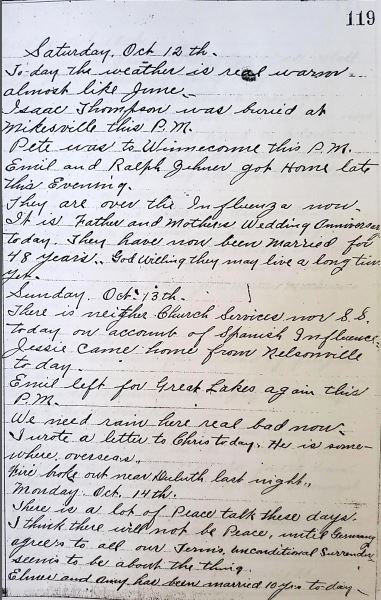 119
Saturday. Oct 12th.
To-day the weather is real warm
almost like June.
Isaac Thompson was buried at
Mikesville this P.M.
Pete was to Winneconne this P.M.
Emil and Ralph Zehner got Home late
this Evening.
They are over the Influenza now.
It is Father and Mothers Wedding Anniversar
today. They have now been married for
48 years. God Willing they may live a long time
yet.
Sunday. Oct. 13th.
There is neither Church Services nor S.S.
today on account of Spanish Influence.
Jessie Came home from Nelsonville
to day.
Emil left for Great Lakes again this
P.M.
We need rain here real bad now.
I wrote a letter to Chris today. He is some-
where, overseas.
Fire broke out near Duluth last night.
Monday. Oct. 14th.
There is a lot of Peace talk these days.
I think there will not be Peace, until Germany
agree's to all our Terms, Unconditional Surrender
seems to be about the thing.
Elmer and Amy has been married 10 yrs to-day